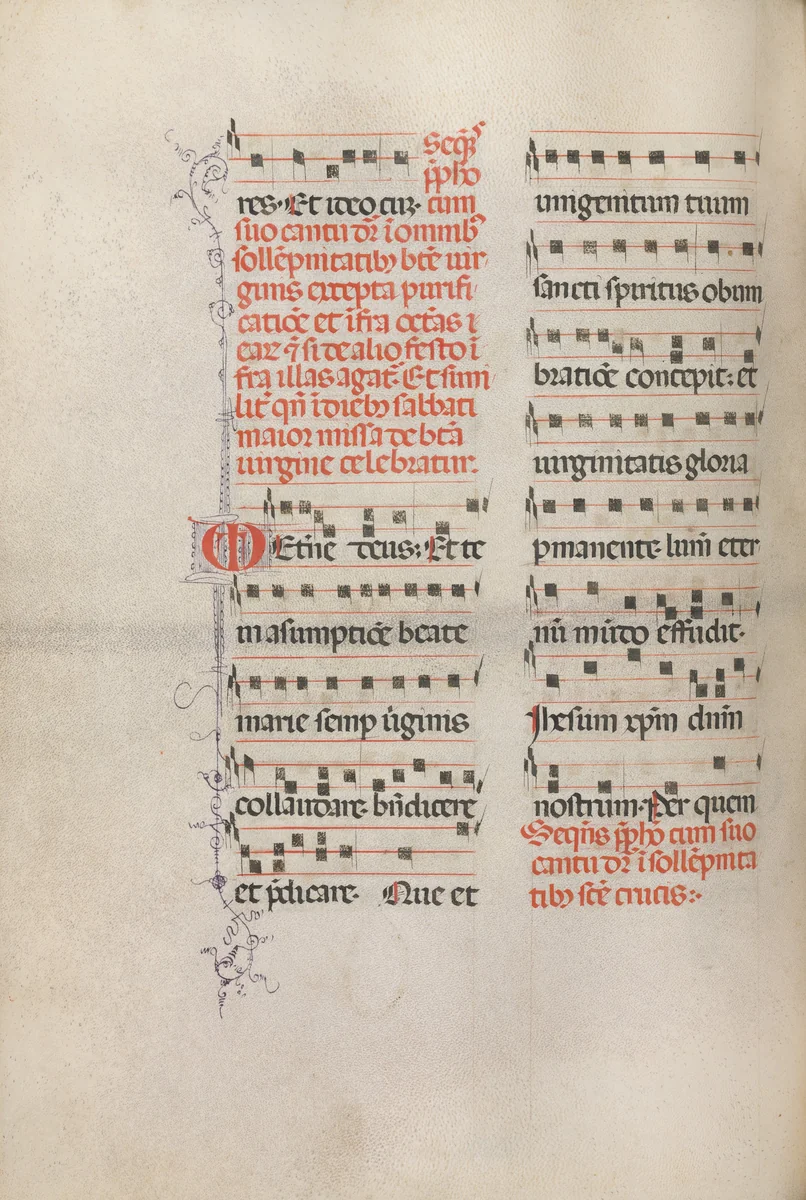 Seqñs
p̃pho
res· Et ideo cuz· cum
suo cantu dr̃ ĩ omnibꝫ
sollẽpnitatibꝫ bt̃e uir
ginis excepta purifi
catiõe et ĩfra octãs i
eaꝝ ⁊ si de alio festo ĩ
fra illas agat̃· Et simi
lit̃ qñ ĩ diebꝫ sabbati
maior missa de bt̃a
uirgine celebratur·
Et̃ne deus: Et te
in asumptiõe beate
marie semp ũginis
collaudare· bñdicere
et p̃dicare· Que et
unigenitum tuum
sancti spiritus obum
bratiõe concepit: et
uirginitatis gloria
pmanente· lum̃ eter
nũ mũdo effudit·
Ihesum xp̃m dñm
nostrum· Per quem
Seqñs p̃pho cum suo
cantu dr̃ ĩ sollẽpnita
tibꝫ st̃e crucis:·